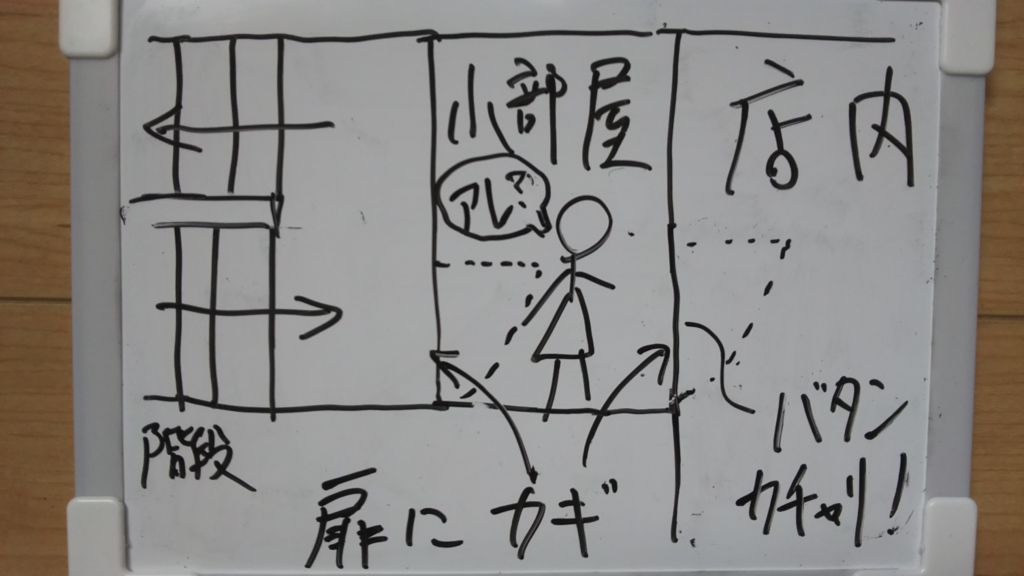 小部屋
店内
アレ?
階段
扉にカギ
バタン
カチャリ!